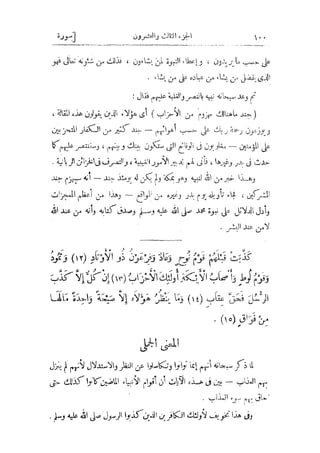 ١٠٠ الجزء الثالث والعشرون [سورة
على حسب ما يريدون ، وإعطاء النبوة لمن يشاءون ، فذلك من شئونه تعالى فهو
الذى يتفضل على من يشاء من عباده على من يشاء .
ثم وعد سبحانه نبيه بالنصر والغلبة عليهم فقال :
( جند ما هنالك مهزوم من الأحزاب ) أى هؤلاء الذين يقولون هذه المقالة ،
ويوزعون رحمة ربك على حسب أهوائهم — جند كثير من الكفار المتحزبين
على المؤمنين — مغلوبون فى الوقائع التى ستكون بينك وبينهم ، وستنتصر عليهم كما
حدث فى بدر وغيرها ، فأنى لهم تدبير الأمور الغيبية ، والتصرف فى الخزائن الربانية .
وهذا خبر من الله لنبيه وهو بمكة ولم يكن له يومئذ جند — أنه سيهزم جند
المشركين ، فجاء تأويله يوم بدر وغيره من المواقع — وهذا من أعظم المعجزات
وأدل الدلائل على نبوة محمد صلى الله عليه وسلم وصدق كتابه وأنه من عند الله
لا من عند البشر .
كَذَّبَتْ قَبْلَهُمْ قَوْمُ نُوحٍ وَعَادٌ وَفِرْعَوْنُ ذُو الْأَوْتَادِ (١٢) وَثَمُودُ
وَقَوْمُ لُوطٍ وَأَصْحَابُ الْأَيْكَةِ أُولَئِكَ الْأَحْزَابُ (١٣) إِنْ كُلٌّ إِلَّا كَذَّبَ
الرُّسُلَ فَحَقَّ عِقَابِ (١٤) وَمَا يَنْظُرُ هَؤُلَاءِ إِلَّا صَيْحَةً وَاحِدَةً مَا لَهَا
مِنْ فَوَاقٍ (١٥) .
المعنى الجملى
لما ذكر سبحانه أنهم إنما توانوا وتكاسلوا عن النظر والاستدلال لأنهم لم ينزل
بهم العذاب — بين فى هذه الآيات أن أقوام الأنبياء الماضين كانوا كذلك حتى
حاق بهم سوء العذاب .
وفى هذا تخويف لأولئك الكافرين الذين كذبوا الرسول صلى الله عليه وسلم .